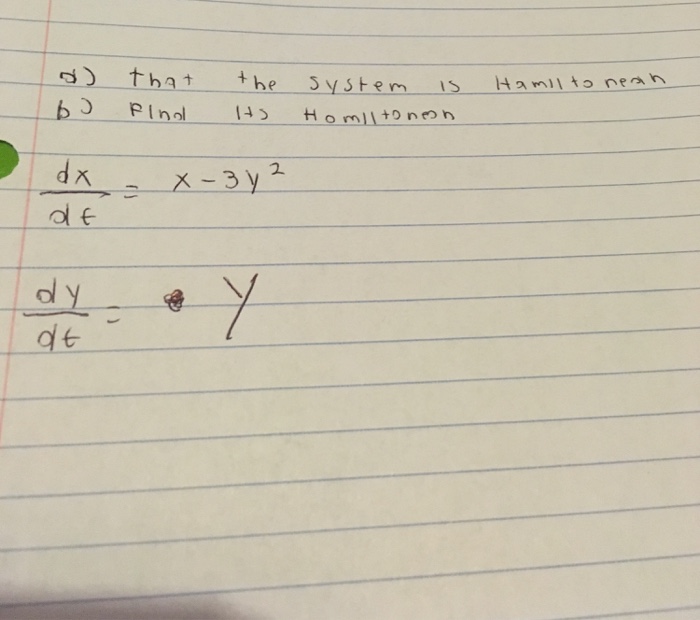 a) that the system is Hamiltonean
b) Find its Hamiltonean
dx/dt = x - 3y²
dy/dt = y